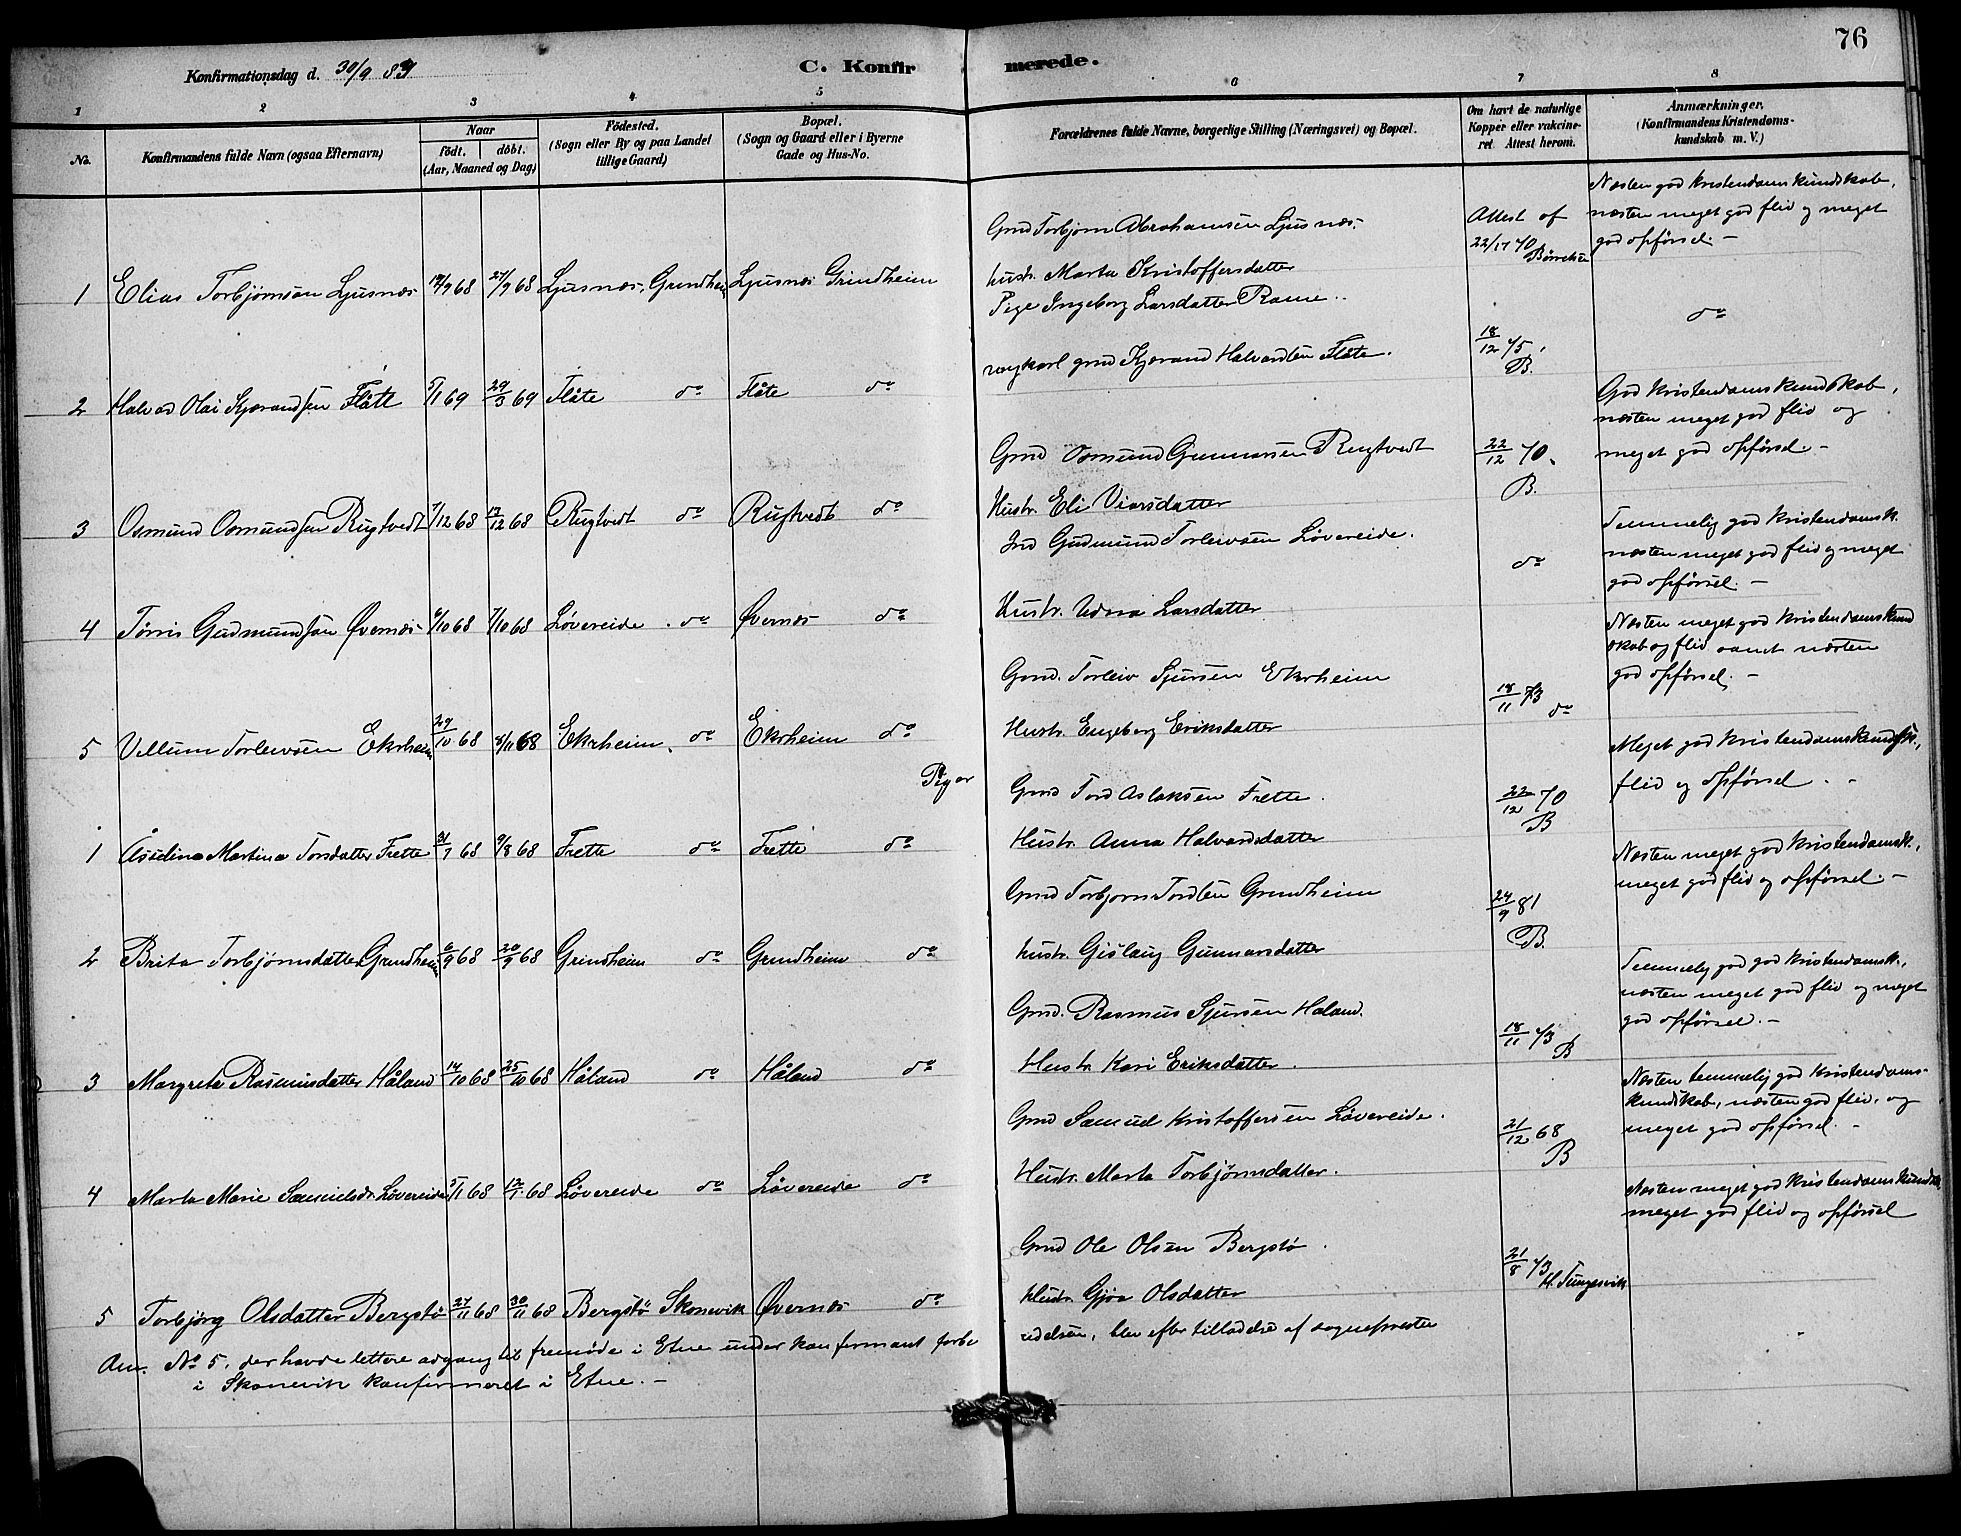 76
Konfirmationsdag d. 30/9 83
C. Konfirmerede.
1 2 3 4 5 6 7 8
No.
Konfirmandens fulde Navn (ogsaa Efternavn)
Naar
födt. döbt.
(Aar, Maaned og Dag)
Födested.
(Sogn eller By og paa Landet
tillige Gaard)
Bopæl.
(Sogn og Gaard eller i Byerne
Gade og Hus-No.
Forældrenes fulde Navne, borgerlige Stilling (Næringsvei) og Bopæl.
Om havt de naturlige
Kopper eller vakcine-
ret. Attest herom.
Anmærkninger.
(Konfirmandens Kristendoms-
kundskab m. V.)
1 Elias Torbjørnsøn Ljusnes 27/9 68 Ljusnes, Grindheim Ljusnes Grindheim
Grd Torbjørn Abrahamsen Ljusnes.
Hustr. Marta Kristoffersdatter
Attest af
22/ 70
Næsten god Kristendomskundskab,
næsten meget god flid og meget
god opførsel. -
2 Halvard Olai Kjærandsen Flåte 5/1 69 29/3 69 Flåte do Flåte do
Pige Ingeborg Larsdatter Rame..
ungkarl grd Kjerand Halvardsen Flåte.
18/12 75
B.
do
3 Osmund Osmundsen Rugtvedt 7/12 68 13/12 68 Rugtvedt do Rugtvedt do
Grd Osmund Gunnarsen Rugtvedt
Hustr. Eli Viarsdatter
22/12 70.
B.
God Kristendomskundskab,
næsten meget god flid og
meget god opførsel -
4 Tørris Gudmundsøn Øvernes 6/10 68 7/10 68 Løvereide do Øvernes do
Ind Gudmund Torleivsen Løvereide.
Hustr. Larsdatter
do
Temmelig god Kristendomsk.
næsten meget god flid og meget
god opførsel. -
5 Villum Torleivsen Ekrheim 29/10 68 8/11 68 Ekrheim, do Ekrheim do
Grd. Torleiv Sjursen Ekrheim
Hustr. Engeborg Eriksdatter
18/11 73
do
Næsten meget god Kristendomskund
skab og flid samt næsten
god opførsel. -
Piger
1 Åselina Martina Torsdatter Frette 31/7 68 9/8 68 Frette do Frette do
Grd Tord Aslaksen Frette.
Hustr. Anna Halvardsdatter
22/12 70
B
Meget god Kristendomskundsk.,
flid og opførsel. -
2 Brita Torbjørnsdatter Grindheim 6/9 68 20/9 68 Grindheim do Grindheim do
Grd Torbjørn Tordsen Grindheim
Hustr. Gislaug Gunnarsdatter
24/9 81
B.
Næsten meget god Kristendomsk.,
meget god flid og opførsel. -
3 Margreta Rasmusdatter Håland 14/10 68 25/10 68 Håland do Håland do
Grd. Rasmus Sjursen Håland.
Hustr Kari Eriksdatter.
18/11 73
B
Temmelig god god Kristendomsk.,
næsten meget god flid og meget
god opførsel. -
4 Marta Marie Samuelsdr Løvereide 5/1 68 12/1 68 Løvereide do Løvereide do
Grd Samuel Kristoffersen Løvereide.
Hustr. Marta Torbjørnsdatter.
21/12 68
B
Næsten temmelig god Kristendoms-
kundskab, næsten god flid, og
meget god opførsel. -
5 Torbjørg Olsdatter Bergstø 27/11 68 30/11 68 Bergstø Skonevik Øvernes do
Grd Ole Olsen Bergstø.
Hustr. Gjøa Olsdatter
21/8 73
H. Tungesvik
Næsten meget god Kristendomskundsk.
meget god flid og opførsel
Anm. No 5, der havde lettere adgang til fremøde i Etne under konfirmant forbe
redelsen, blev efter tilladelse af sognepresten
i Skonevik konfirmeret i Etne. -